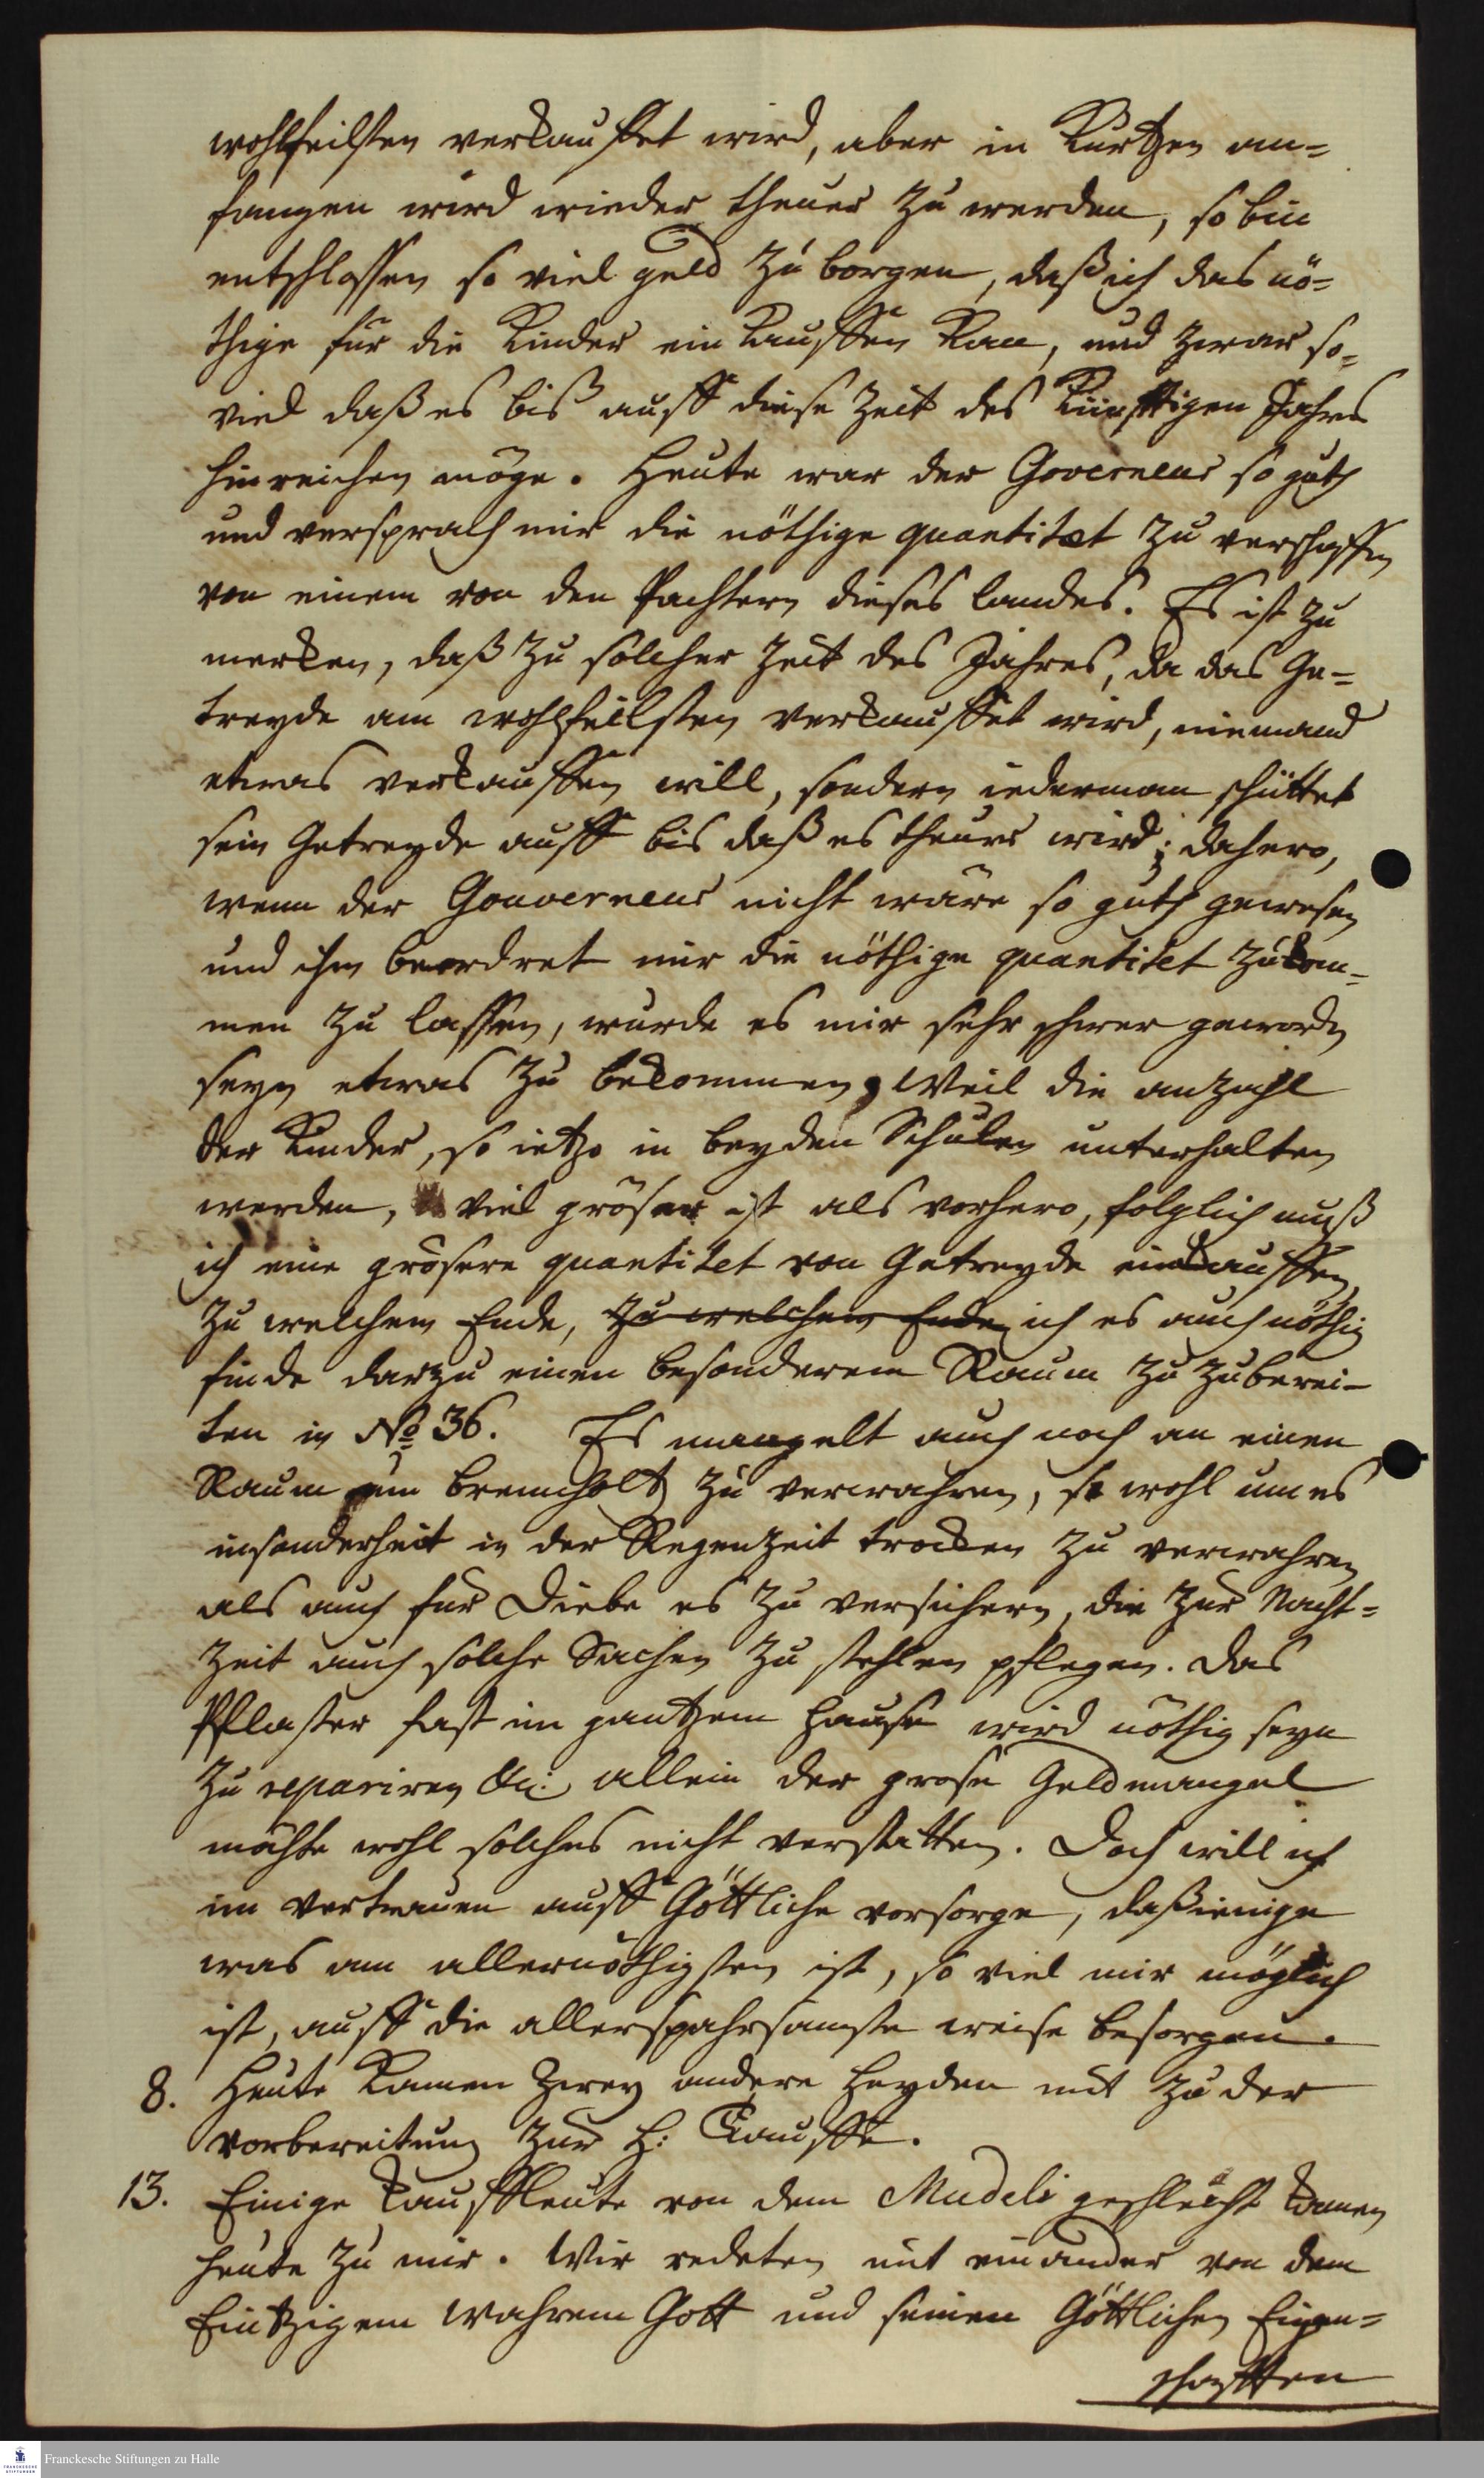 wohlfeilsten verkauffet wird, aber in Kurtzen an-
fangen wird wieder theuer zu werden, so bin
entschlossen so viel geld zu borgen, daß ich das nö-
thige für die Kinder ein kauffen kan, und zwar so-
viel daß es biß auff diese Zeit des künfftigen Jahrs
hinreichen möge. Heute war der Governeur so guth
und versprach mir die nöthige quantitæt zu verschaffen
von einem von den Pachtern dieses landes. Es ist zu
merken, daß zu solcher Zeit des Jahres, da das Ge-
treyde am wohlfeilsten verkauffet wird, niemand
etwas verkauffen will, sondern iederman schüttet
sein Getreyde auff bis daß es theurs wird; dahero,
wenn der Gouverneur nicht wäre so guth gewesen
und ihm beordret mir die nöthige quantitet zukom-
men zu lassen, wurde es mir sehr schwer geworden
seyn etwas zu bekommen, Weil die anzahl
der Kinder, so ietzo in beyden Schulen unterhalten
werden, viel gröser ist als vorhero, folglich muß
ich eine grösere quantitet von Getreyde einkauffen,
zu welchem Ende, zu welchem Ende, ich es auch nöthig
finde darzu einen besonderem Raum zu zuberei-
ten in No 36. Es mangelt auch noch an einen
Raum um brennholtz zu verwahren, so wohl um es
insonderheit in der Regenzeit trocken zu verwahren
als auch für Diebe es zu versichern, die zur Nacht-
Zeit auch solche Sachen zu stehlen pflegen. Das
Pflaster fast im gantzem Hause wird nöthig seyn
zu repariren &c: allein der grose Geldmangel
möchte wohl solches nicht verstatten. Doch will ich
im vertrauen auff Göttliche vorsorge, daßienige
was am allernöthigsten ist, so viel mir möglich
ist, auff die allerspahrsamste weise besorgen.
8. Heute kamen Zwey andere Heyden mit zu der
vorbereitung zur H: Tauffe.
13. Einige kauffleute von dem Mudeli geschlecht kamen
heute zu mir. Wir redeten mit einander von dem
Eintzigem wahrem Gott und seinen Göttlichen Eigen-
schafften
Franckesche Stiftungen zu Halle